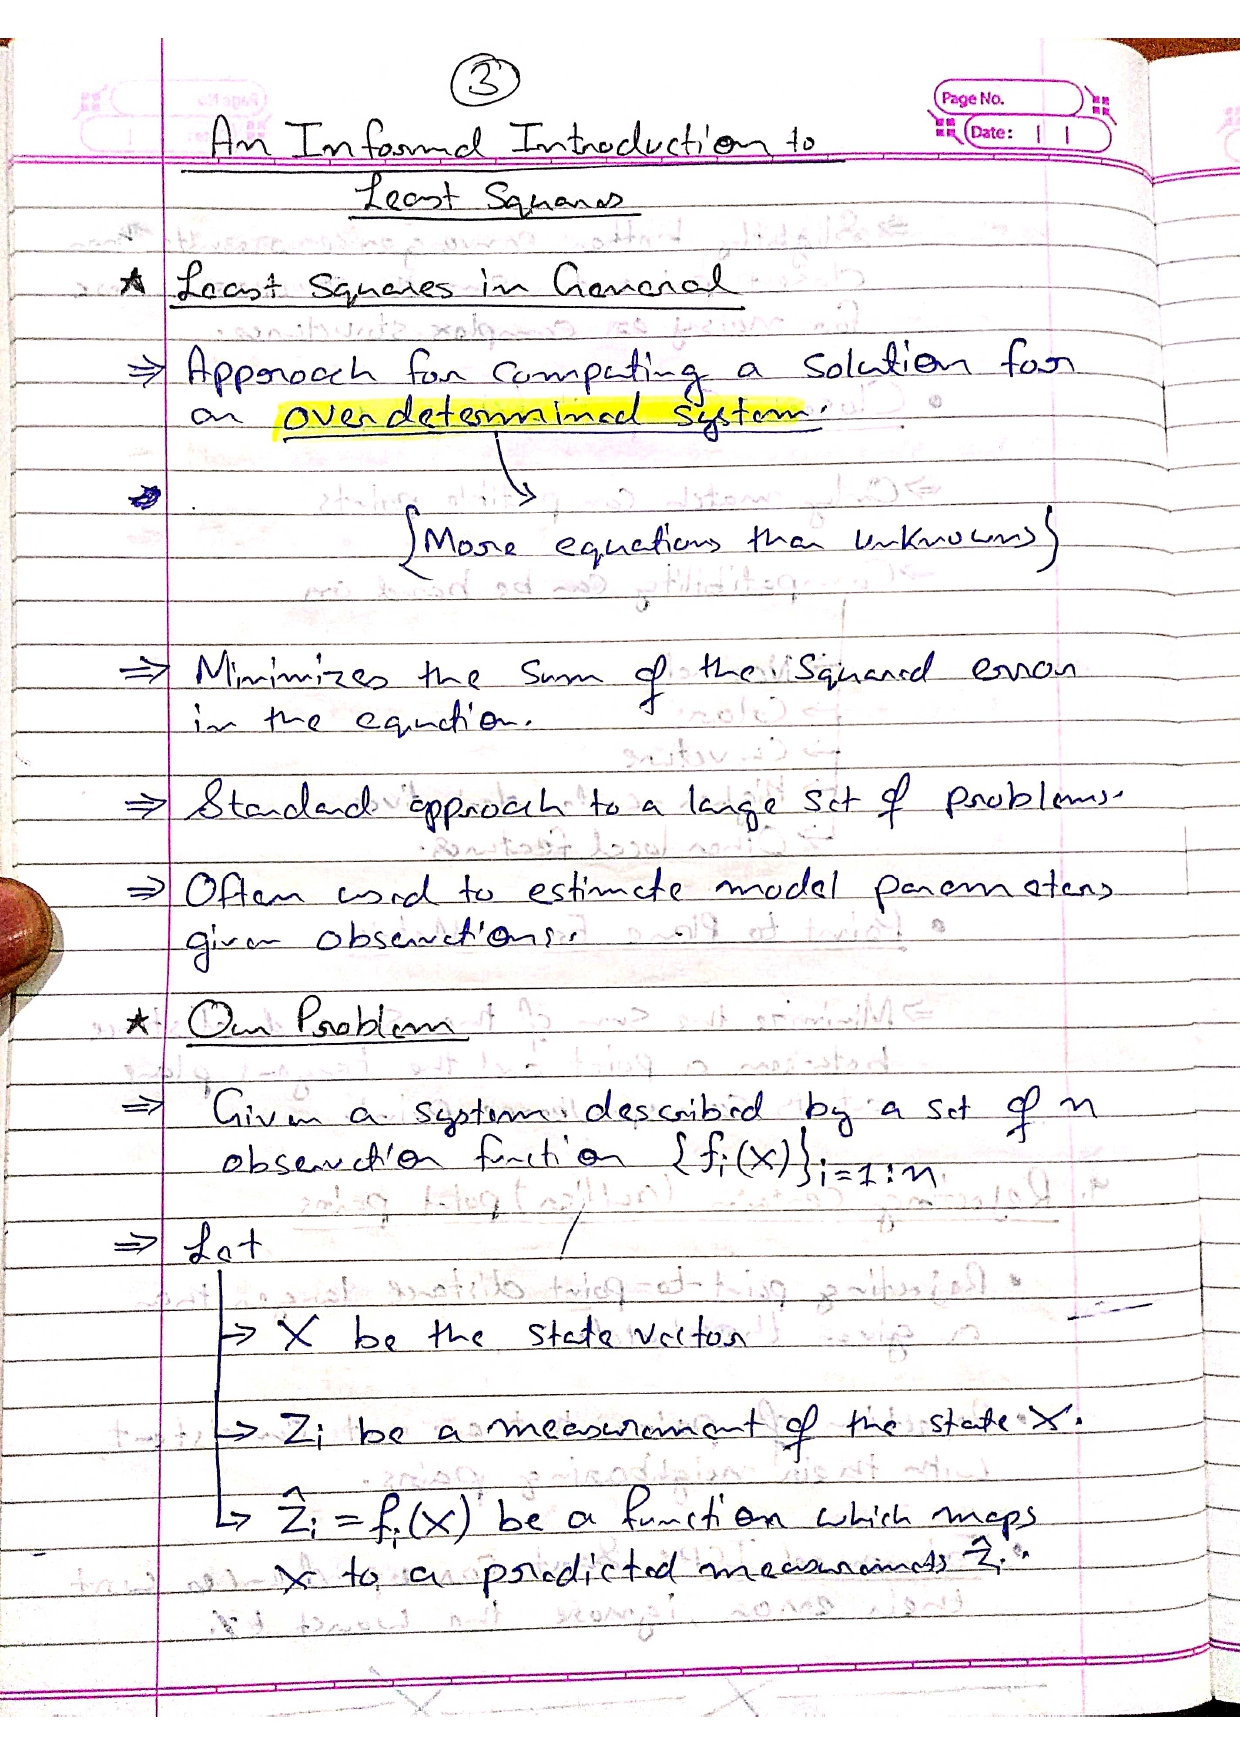 3
Page No.
Date:
An Informal Introduction to
Least Squares
★ Least Squares in General
⇒ Approach for computing a solution for
an overdetermined system.
{More equations than unknowns}
⇒ Minimizes the sum of the squared error
in the equation.
⇒ Standard approach to a large set of problems.
⇒ Often used to estimate model parameters
given observations.
★ Our Problem
⇒ Given a system described by a set of n
observation function {fᵢ(x)}ᵢ₌₁:ₙ
⇒ Let
→ X be the state vector
→ Zᵢ be a measurement of the state X.
→ Ẑᵢ = fᵢ(x) be a function which maps
X to a predicted measurements Ẑᵢ.